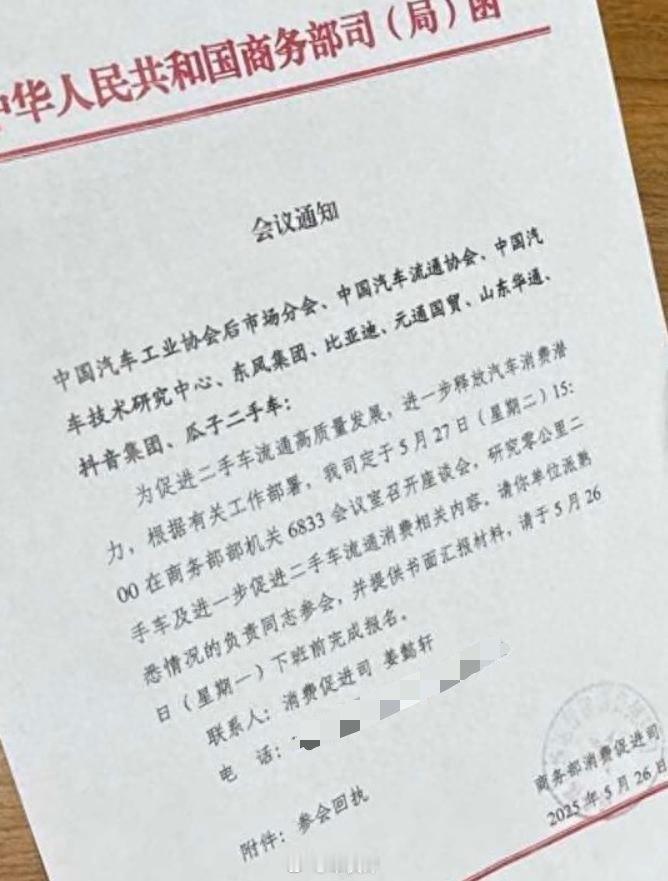 中华人民共和国商务部司（局）函
会议通知
中国汽车工业协会后市场分会、中国汽车流通协会、中国汽
车技术研究中心、东风集团、比亚迪、元通国贸、山东华通、
抖音集团、瓜子二手车：
为促进二手车流通高质量发展，进一步释放汽车消费潜
力，根据有关工作部署，我司定于5月27日（星期二）15:
00在商务部部机关6833会议室召开座谈会，研究零公里二
手车及进一步促进二手车流通消费相关内容。请你单位派熟
悉情况的负责同志参会，并提供书面汇报材料，请于5月26
日（星期一）下班前完成报名。
联系人：消费促进司 姜懿轩
电 话：
附件：参会回执
商务部消费促进司
2025年5月26日